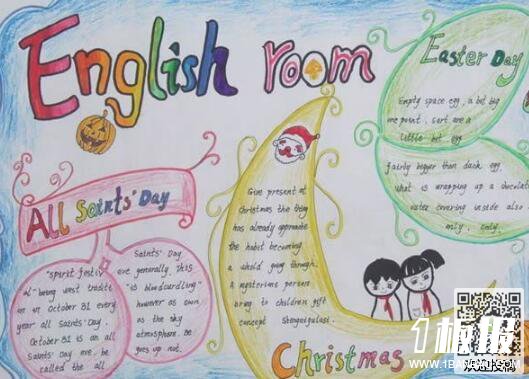 English room
Easter Day
Empty space egg, a bit big
me point, sort are a
little bit egg
fairly bigger than duck egg,
what is wrapping up a chocolate
water covering inside also
mily, only.
All Saints' Day
"spirit festiv
al" being west tradite
on in October 31 every
year all Saints' Day.
October 31 is an all
Saints' Day eve, be
called the all
Saints' Day
eve generally, this
"is bloodcurdling"
however as own
as the sky
atmosphere. Be
goes up not.
Give present at
Christmas the thing
has already approache
the habit becoming
a whold going through.
A mysterious person
bring to children gift
concept
Christmas
1板报
WWW.1BANBAO.COM
欢迎投稿